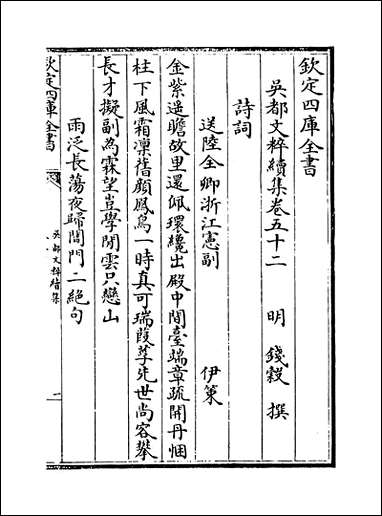 欽定四庫全書
吳都文粹續集卷五十二
明　錢穀　撰
詩詞
送陸全卿浙江憲副
伊策
金紫遥瞻故里還佩環纔出殿中間臺端章疏開丹悃
柱下風霜凜舊顔鳳鳥一時真可瑞葭莩先世尚容攀
長才擬副為霖望豈學閒雲只戀山
雨泛長蕩夜歸閶門二絶句
欽定四庫全書
吳都文粹續集
一